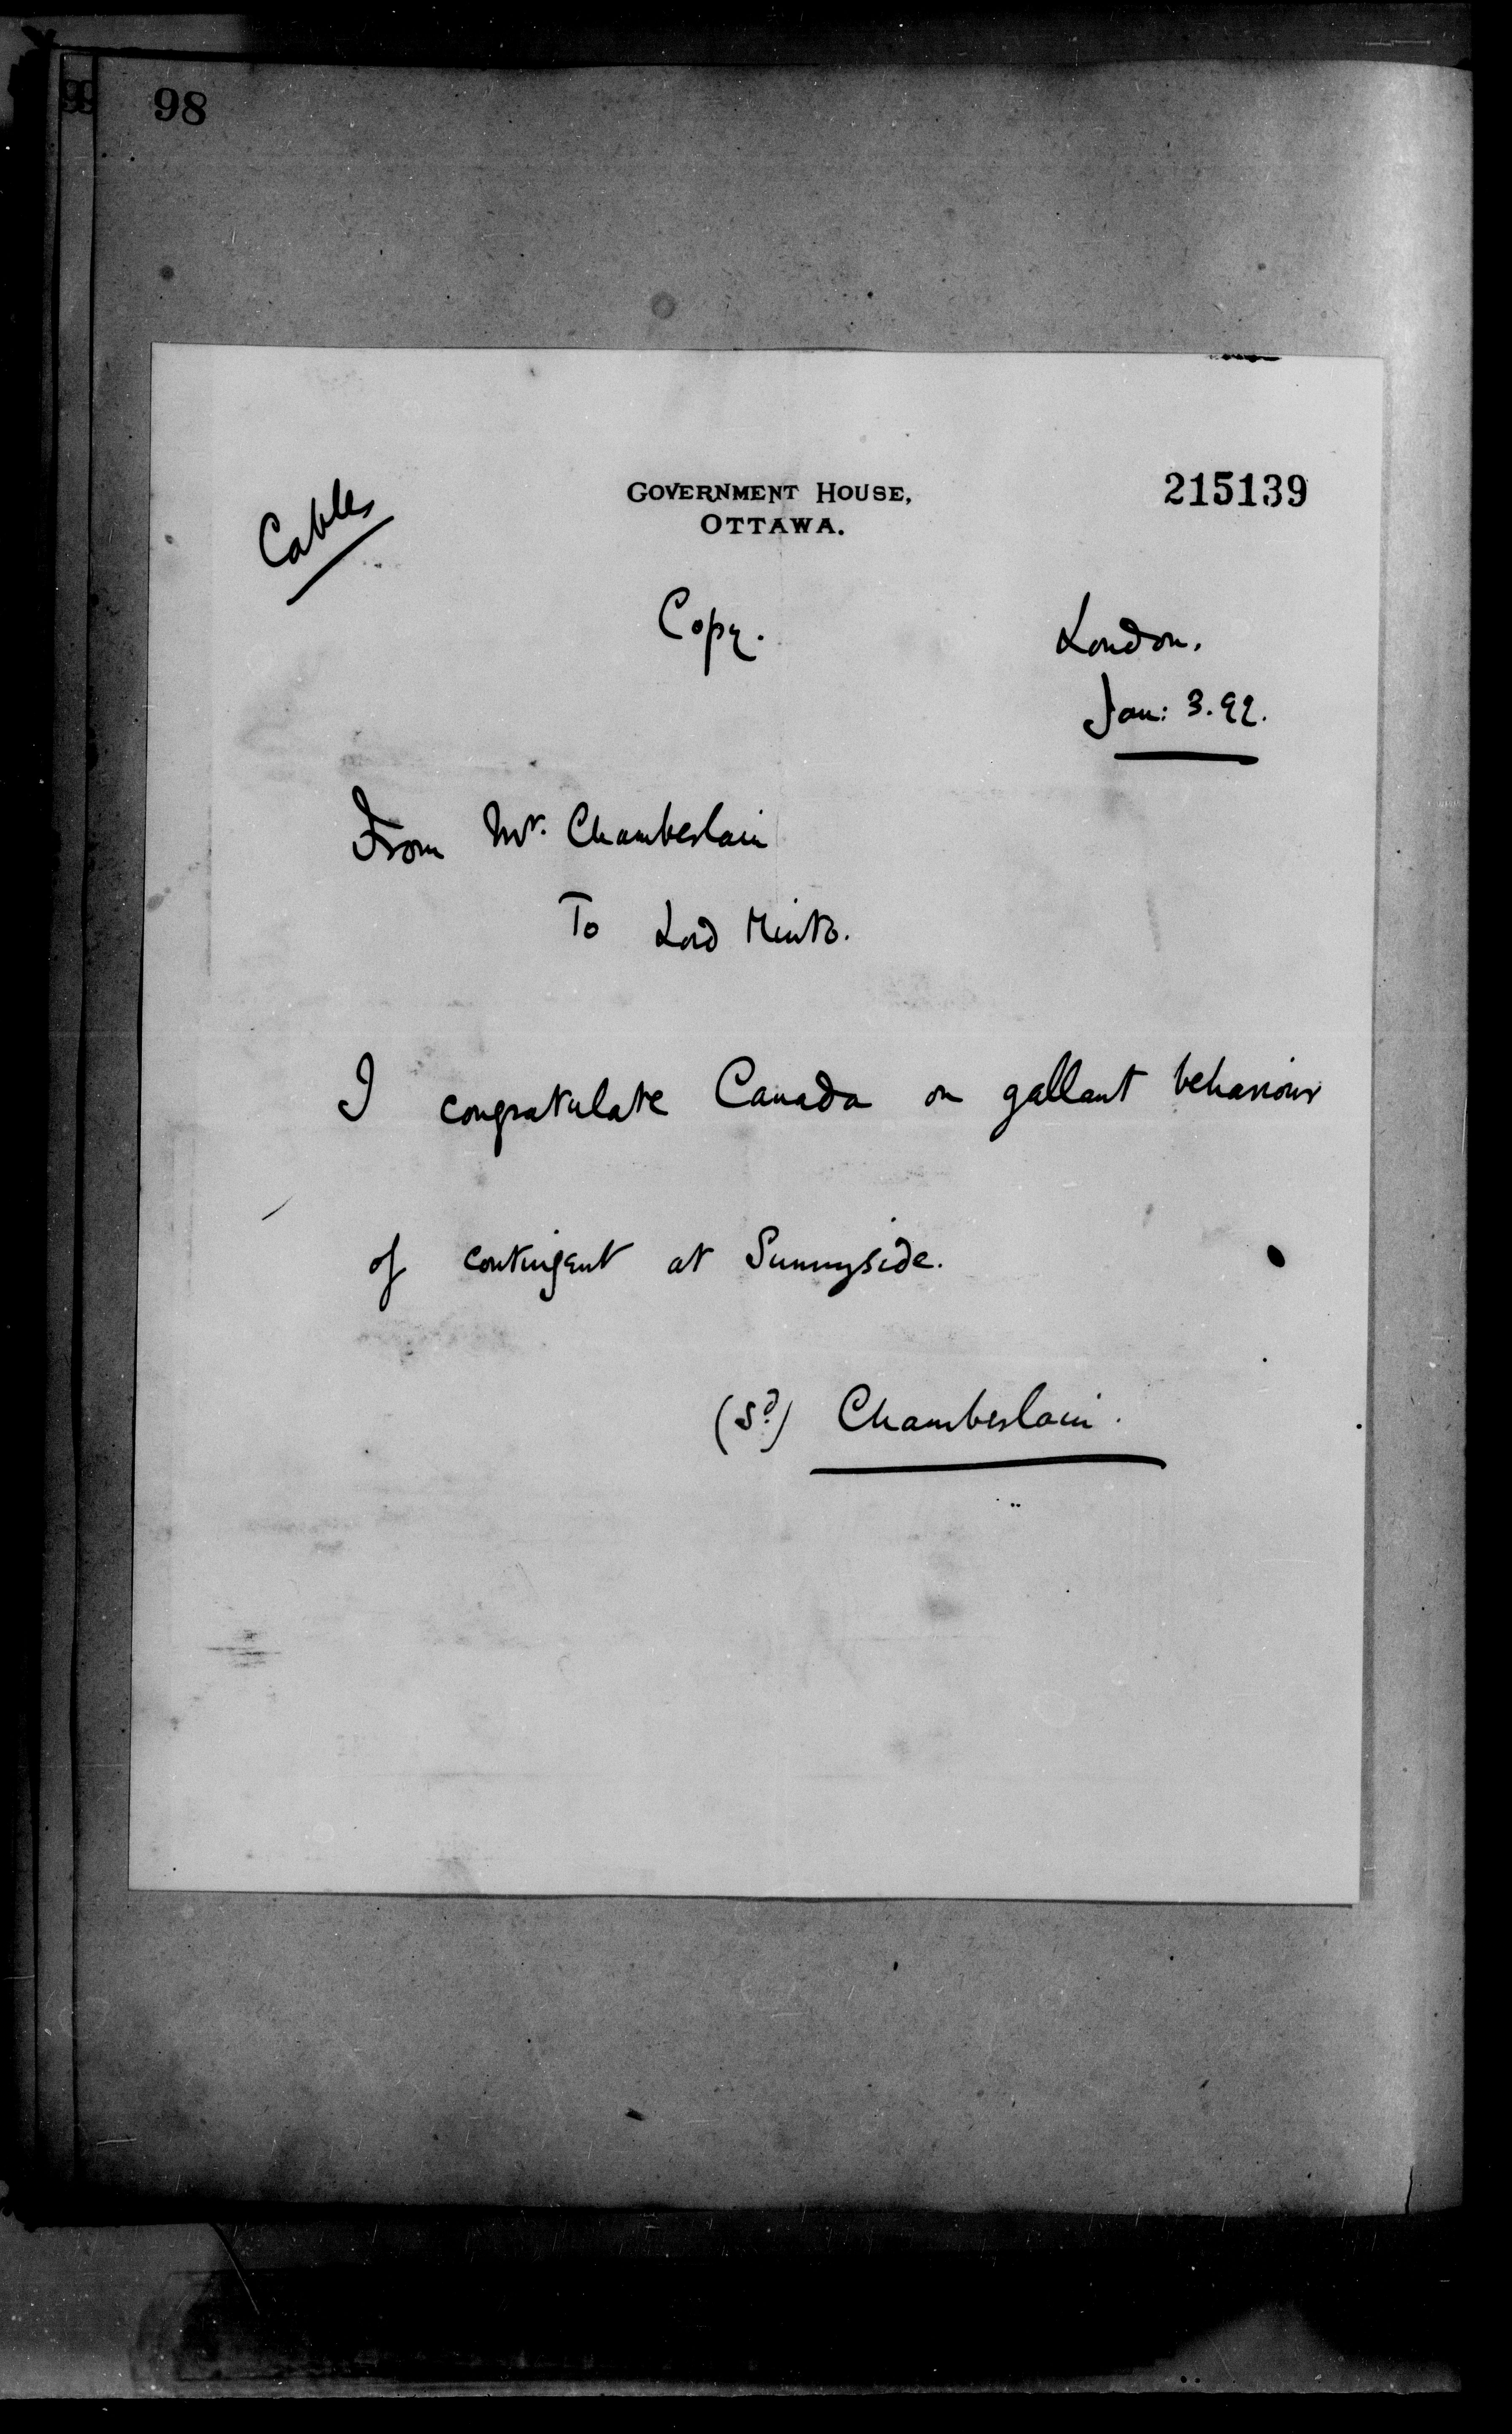 98
GOVERNMENT HOUSE,
OTTAWA.
215139
Cable
Copy.
London.
Jan: 3. 92.
From Mr. Chamberlain
To Lord Minto.
I congratulate Canada on gallant behaviour
of contingent at Sunnyside.
(Sd) Chamberlain.